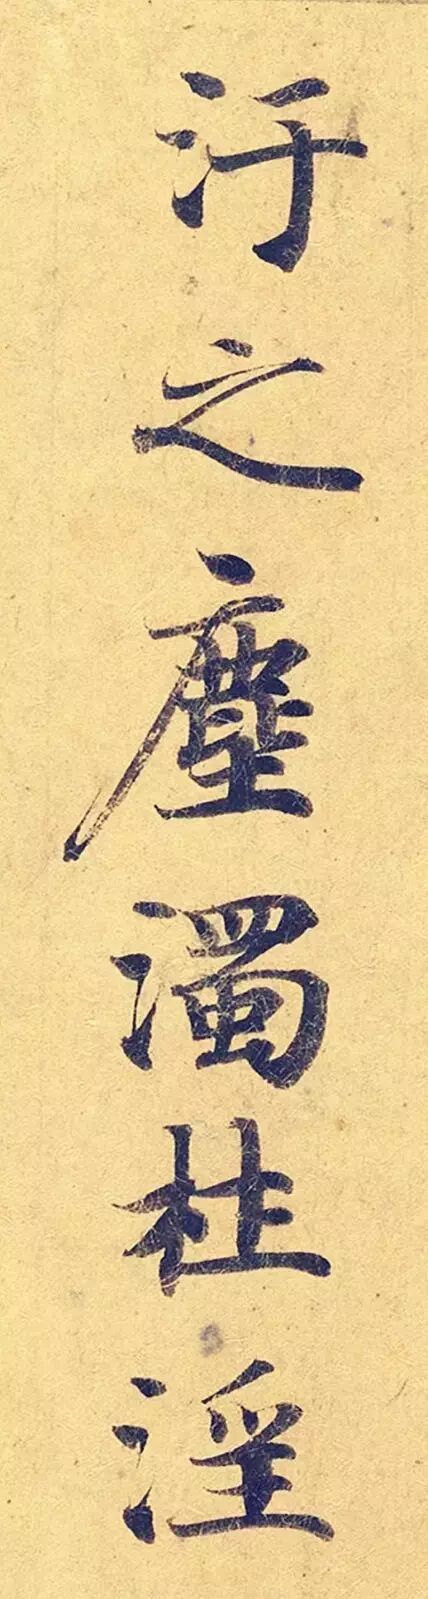 汙之塵濁杜淫